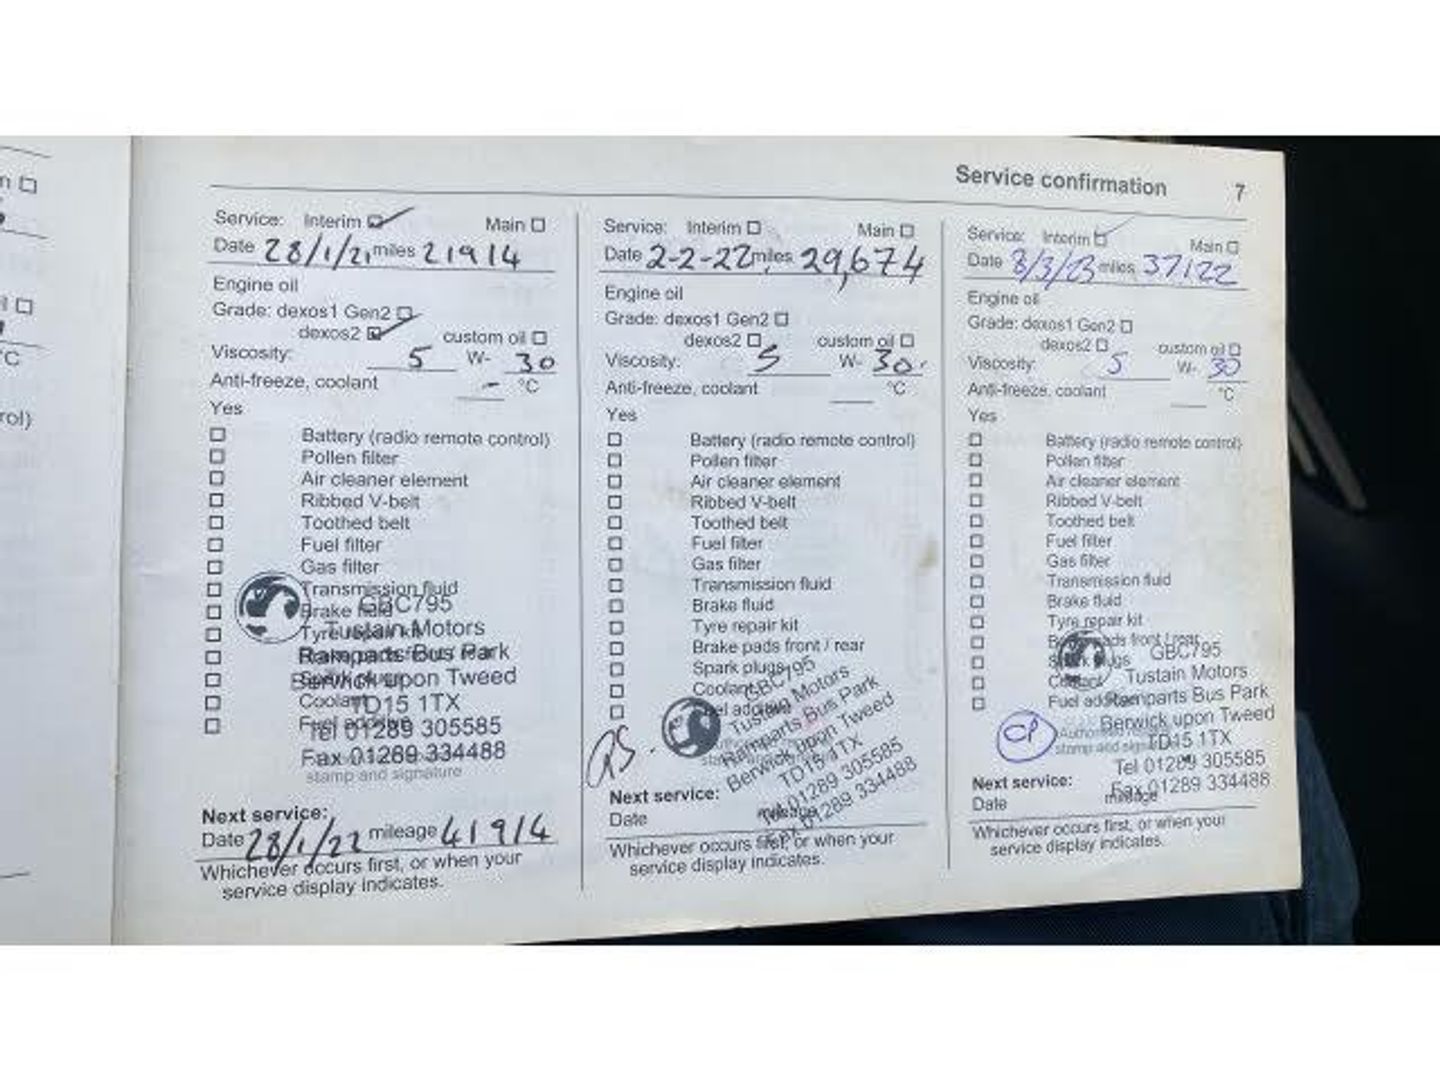 Service confirmation 7
Service: Interim Main
Date 28/1/21 miles 21914
Engine oil
Grade: dexos1 Gen2
dexos2 custom oil
Viscosity: 5 W- 30
Anti-freeze, coolant - °C
Yes
Battery (radio remote control)
Pollen filter
Air cleaner element
Ribbed V-belt
Toothed belt
Fuel filter
Gas filter
Transmission fluid
GBC795
Tustain Motors
Ramparts Bus Park
Berwick upon Tweed
TD15 1TX
Tel 01289 305585
Fax 01289 334488
stamp and signature
Next service:
Date 28/1/22 mileage 41914
Whichever occurs first, or when your
service display indicates.
Service: Interim Main
Date 2-2-22 miles 29,674
Engine oil
Grade: dexos1 Gen2
dexos2 custom oil
Viscosity: 5 W- 30.
Anti-freeze, coolant °C
Yes
Battery (radio remote control)
Pollen filter
Air cleaner element
Ribbed V-belt
Toothed belt
Fuel filter
Gas filter
Transmission fluid
Brake fluid
Tyre repair kit
Brake pads front / rear
Spark plugs
Coolant
GBC795
Tustain Motors
Ramparts Bus Park
Berwick upon Tweed
TD15 1TX
Tel 01289 305585
Fax 01289 334488
Next service:
Date mileage
Whichever occurs first, or when your
service display indicates.
Service: Interim Main
Date 3/3/23 miles 37122
Engine oil
Grade: dexos1 Gen2
dexos2 custom oil
Viscosity: 5 W- 30
Anti-freeze, coolant °C
Yes
Battery (radio remote control)
Pollen filter
Air cleaner element
Ribbed V-belt
Toothed belt
Fuel filter
Gas filter
Transmission fluid
Brake fluid
Tyre repair kit
Brake pads front / rear
Spark plugs
Coolant
Fuel additive
GBC795
Tustain Motors
Ramparts Bus Park
Berwick upon Tweed
TD15 1TX
Tel 01289 305585
Fax 01289 334488
Next service:
Date mileage
Whichever occurs first, or when your
service display indicates.